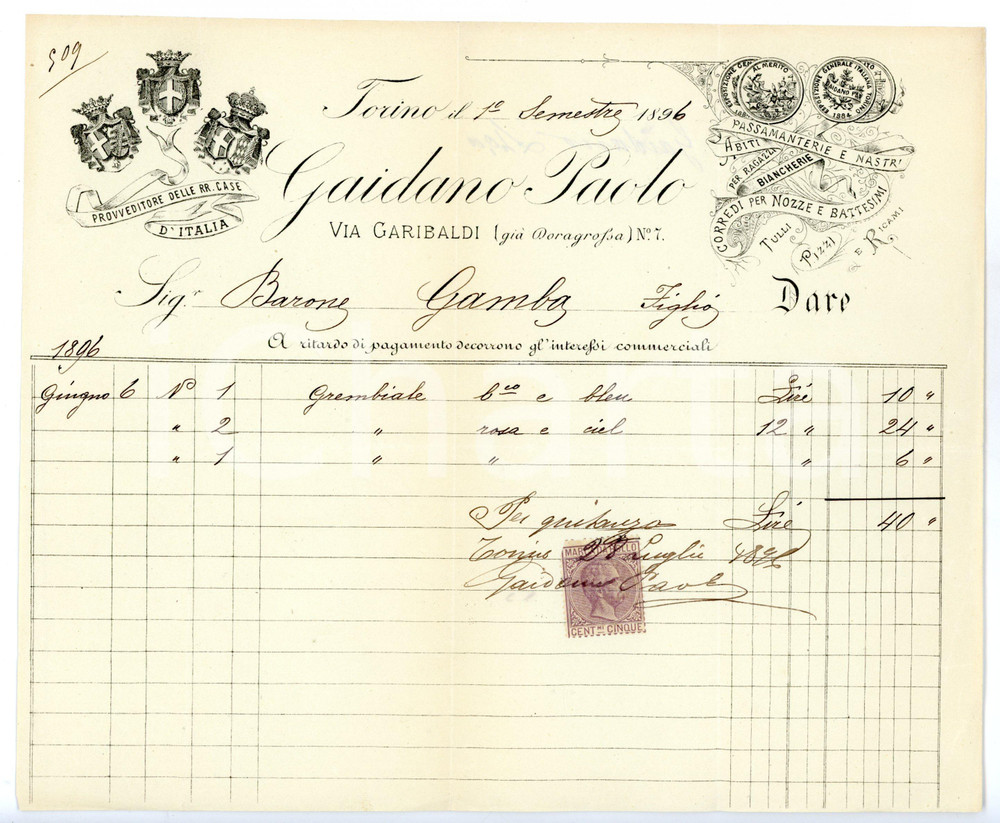 509
PROVVEDITORE DELLE RR. CASE
D'ITALIA
Torino il 1º Semestre 1896
Gaidano Paolo
VIA GARIBALDI (già Doragrossa) Nº 7.
AL MERITO
ESPOSIZIONE GENERALE ITALIANA
TORINO
1884
PASSAMANTERIE E NASTRI
ABITI
PER RAGAZZI
BIANCHERIE
CORREDI PER NOZZE E BATTESIMI
TULLI
PIZZI
E RICAMI
Sigr Barone Gamba Figlio Dare
A ritardo di pagamento decorrono gl'interessi commerciali
1896
Giugno 6 Nº 1 Grembiale bco e bleu Lire 10 "
" 2 " rosa e ciel 12 " 24 "
" 1 " " " 6 "
Per quitanza Lire 40 "
Torino 28 Luglio 1896
Gaidano Paolo
MARCA DA BOLLO
CENT.MI CINQUE